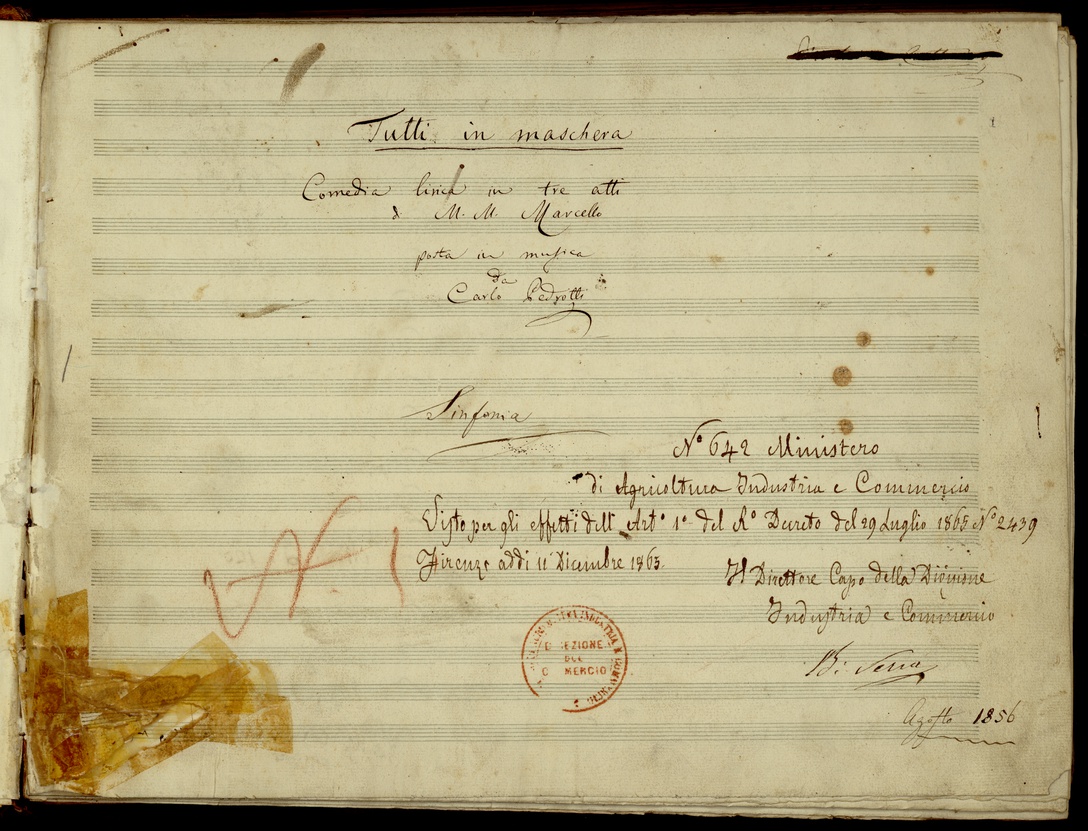 Tutti in maschera
Comedia lirica in tre atti
di M. M. Marcello
posta in musica
da
Carlo Pedrotti
Sinfonia
Nº 642 Ministero
di Agricoltura Industria e Commercio
Visto per gli effetti dell' Artº 1º del Rº Decreto del 29 Luglio 1865 Nº 2439
Firenze addi 11 Dicembre 1865.
Il Direttore Capo della Divisione
Industria e Commercio
Serra
N 1
INDUSTRIA E COMMERCIO
D EZIONE
DEL
C MERCIO
Agosto 1856